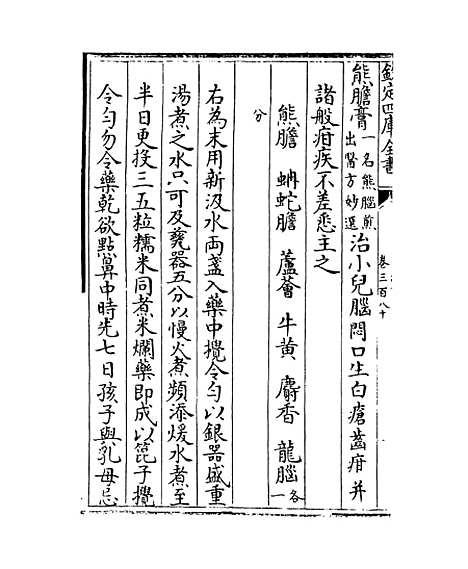 欽定四庫全書
卷三百八十
熊膽膏一名熊腦煎出醫方妙選治小兒腦悶口生白瘡齒疳并
諸般疳疾不差悉主之
熊膽 蚺蛇膽 蘆薈 牛黄 麝香 龍腦各一
分
右為末用新汲水兩盞入藥中攪令勻以銀器盛重
湯煮之水只可及甆器五分以慢火煮頻添煖水煮至
半日更投三五粒糯米同煮米爛藥即成以箆子攪
令勻勿令藥乾欲點鼻中時先七日孩子與乳母忌